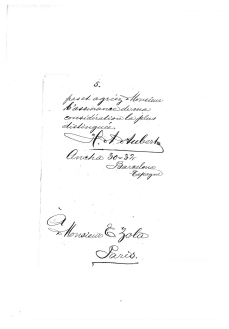 5.
et agréez, Monsieur
l'assurance de ma
considération la plus
distinguée.
H. A. Aubert
Ancha 30-32
Barcelona
Espagne
A
Monsieur E Zola
Paris.